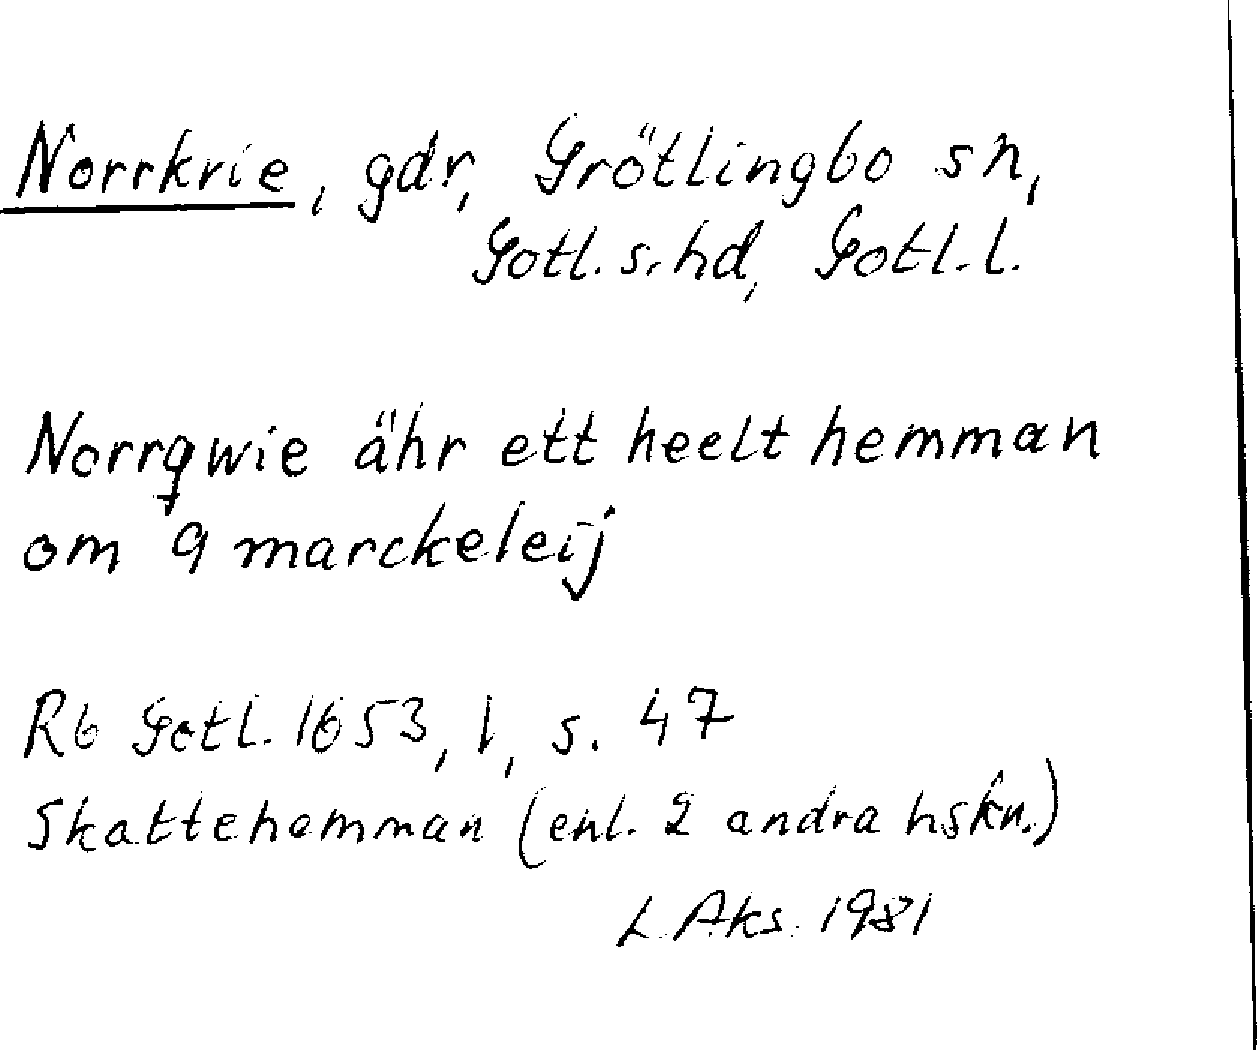 Norrkvie, gdr, Grötlingbo sn,
Gotl. s. hd, Gotl. l.
Norrqwie ähr ett heelt hemman
om 9 marckeleij
Rb Gotl. 1653, 1, s. 47
Skattehemman (enl. 2 andra hskn.)
L Aks. 1981